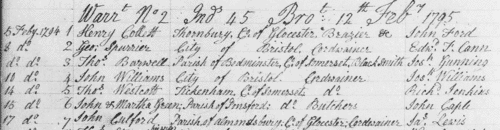 Warrt No 2 Ind 45 Brot 12th Feby 1795
5 Feby 1794 1 Henry Collett Thornbury, Co of Glocester Brazier & John Ford
8 do 2 Geo: Spurrier City of Bristol Cordwainer Edwd T. Cann
do do 3 Thos Barwell Parish of Bedminster, Co of Somerset, Black Smith Jos: Gunning
10 do 4 John Williams City of Bristol Cordwainer Jos: Williams
14 do 5 Thos Westcott Tickenham, Co of Somerset do Richd Jenkins
15 do 6 John & Martha Green, Parish of do Butchers John Caple
17 do 7 John Parish of almondsbury, Co of Glocester, Cordwainer Jas Lewis